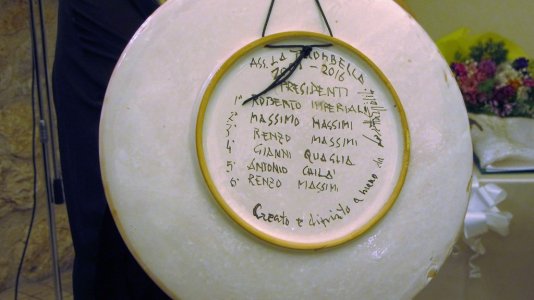 ASS. LA TROMBELLA
- 2016
PRESIDENTI
1° ROBERTO IMPERIALE
2° MASSIMO MASSIMI
3° RENZO MASSIMI
4° GIANNI QUAGLIA
5° ANTONIO CHILA'
6° RENZO MASSIMI
Creato e dipinto a mano da